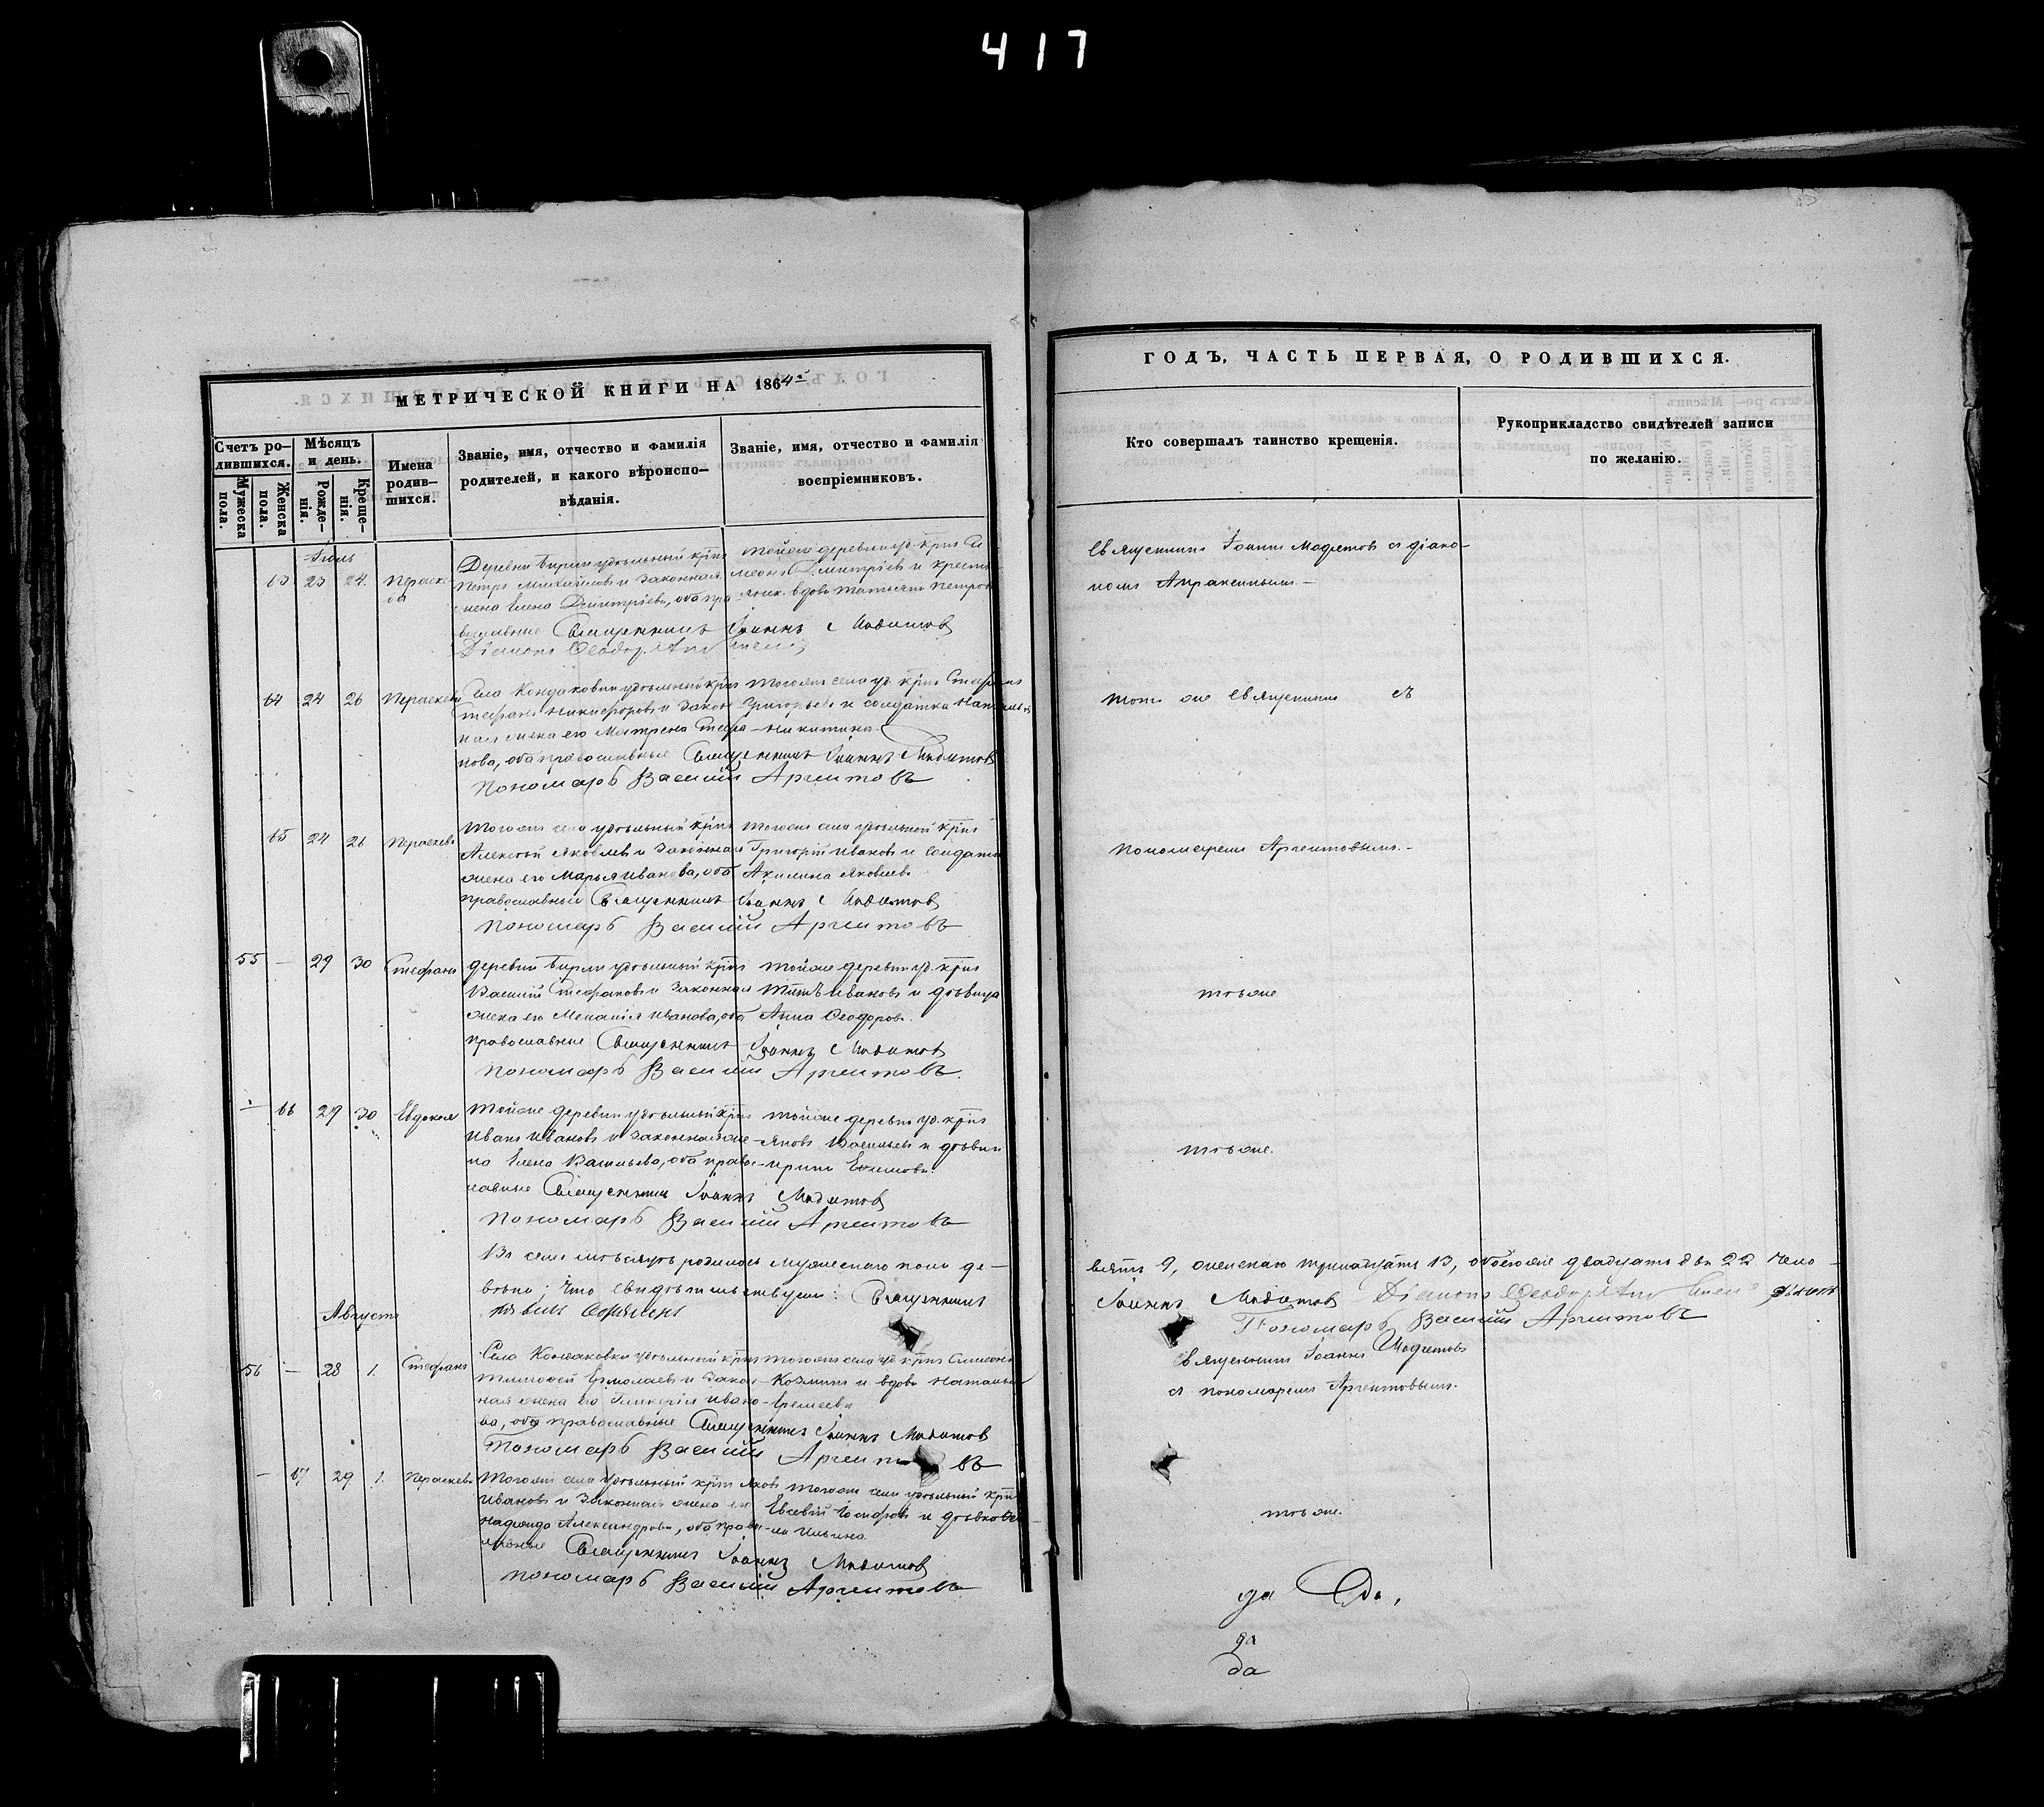 417
МЕТРИЧЕСКОЙ КНИГИ НА 1864й
Счетъ ро-
дившихся.
Мѣсяцъ
и день.
Мужеска
пола.
Женска
пола.
Рожде-
нія.
Креще-
нія.
Имена
родив-
шихся.
Званіе, имя, отчество и фамилія
родителей, и какого вѣроиспо-
вѣданія.
Званіе, имя, отчество и фамилія
воспріемниковъ.
Іюль
63 23 24. Параске
ва
Деревни Бирли удѣльный крнъ
Петръ Михайловъ и законная
жена Елена Дмитріева, оба пра-
вославные
тойже деревни уд. крнъ Си
меонъ Димитріевъ и крестья
вдова Татьяна Петрова
Священникъ Іоаннъ Мадатов
Діаконъ Ѳеодор
64 24 26 Параскева
Села Кондаковки удѣльный крнъ
Стефанъ Никифоровъ и закон
ная жена его Матрена Стефа
нова, оба православные
тогожъ села уд. крнъ Стефанъ
Григорьевъ и солдатка Наталья
Никитина
Священникъ Іоаннъ Мадатов
Пономарь Василій Аргентовъ
65 24 26 Параскева
Тогожъ села удѣльный крнъ
Алексѣй Яковлевъ и законная
жена его Марья Иванова, оба
православные
тогожъ села удѣльной крнъ
Григорій Ивановъ и солдатка
Акилина Яковлева
Священникъ Іоаннъ Мадатов
Пономарь Василій Аргентовъ
55 — 29 30 Стефанъ
деревни Бирли удѣльный крнъ
Василій Стефановъ и законная
жена его Меланія Иванова, оба
православные
тойже деревни уд. крнъ
Титъ Ивановъ и дѣвица
Анна Ѳеодорова
Священникъ Іоаннъ Мадатов
Пономарь Василій Аргентовъ.
— 66 29 30 Евдокия
Тойже деревни удѣльный крнъ
Иванъ Ивановъ и законная же-
на Елена Васильева, оба право-
славные
тойже деревни уд. крнъ
Яковъ Васильевъ и дѣвица
Ирина Ефимова
Священникъ Іоаннъ Мадатов
Пономарь Василій Аргентовъ
Въ семъ мѣсяцѣ родилось мужескаго пола де-
вятъ; что свидѣтельствуемъ: Священникъ
Августъ
56 — 28 1. Стефанъ
Села Кондаковки удѣльный крнъ
Тимофей Ермолаевъ и закон-
ная жена его Гликерія Ивано-
ва, оба православные
тогожъ села уд. крнъ Симеонъ
Козминъ и вдова Наталья
Еремеева
Священникъ Іоаннъ Мадатов
Пономарь Василій Аргентовъ
— 67 29 1. Параскева
Тогожъ села удѣльный крнъ Яковъ
Ивановъ и законная жена его
Надежда Александрова, оба право-
славные
тогожъ села удѣльный крнъ
Евсевій Іосифовъ и дѣвка
Ильина
Священникъ Іоаннъ Мадатов
Пономарь Василій Аргентовъ
ГОДЪ, ЧАСТЬ ПЕРВАЯ, О РОДИВШИХСЯ.
Кто совершалъ таинство крещенія.
Рукоприкладство свидѣтелей записи
по желанію.
Священникъ Іоаннъ Мадатовъ съ діако-
номъ Апраксинымъ.—
тотъ же священникъ съ
пономаремъ Аргентовымъ.—
тѣже
тѣже.
вять 9, женскаго тринадцать 13, обоегоже двадцать два 22 чело-
вѣкъ
Іоаннъ Мадатов Діаконъ Ѳеодор
Пономарь Василій Аргентовъ
Священникъ Іоаннъ Мадатовъ
съ пономаремъ Аргентовымъ.
тѣже.
да
да
да